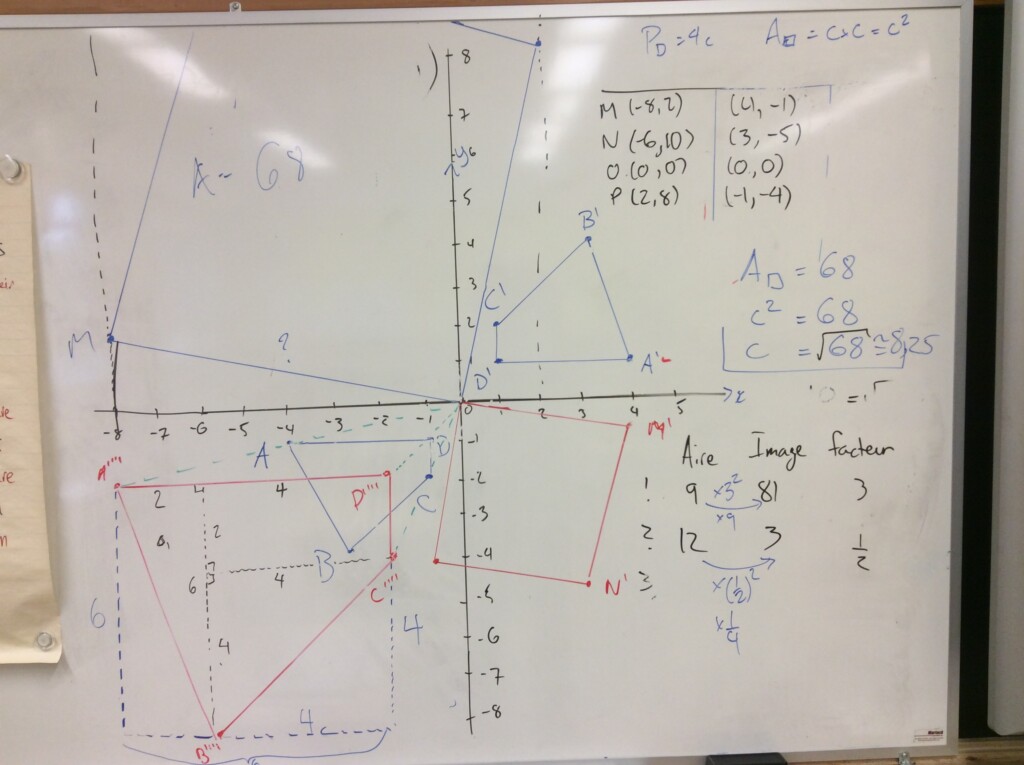 P□ = 4c
A□ = c×c = c²
1)
8
7
6
y
5
4
3
2
1
M (-8,2) (4, -1)
N (-6,10) (3, -5)
O (0,0) (0,0)
P (2,8) (-1,-4)
A = 68
A□ = 68
c² = 68
c = √68 ≅ 8,25
M
?
B'
C'
D'
A'
-8 -7 -6 -5 -4 -3 -2 -1 0 1 2 3 4 5 x
-1
-2
-3
-4
-5
-6
-7
-8
A
D
C
B
M'
N'
A''''
D''''
C''''
B''''
2 4
2
6
4
4
6
4
4
Aire Image facteur
1 9 ×3² 81 3
×9
2 12 3 1/2
×(1/2)²
×1/4
3